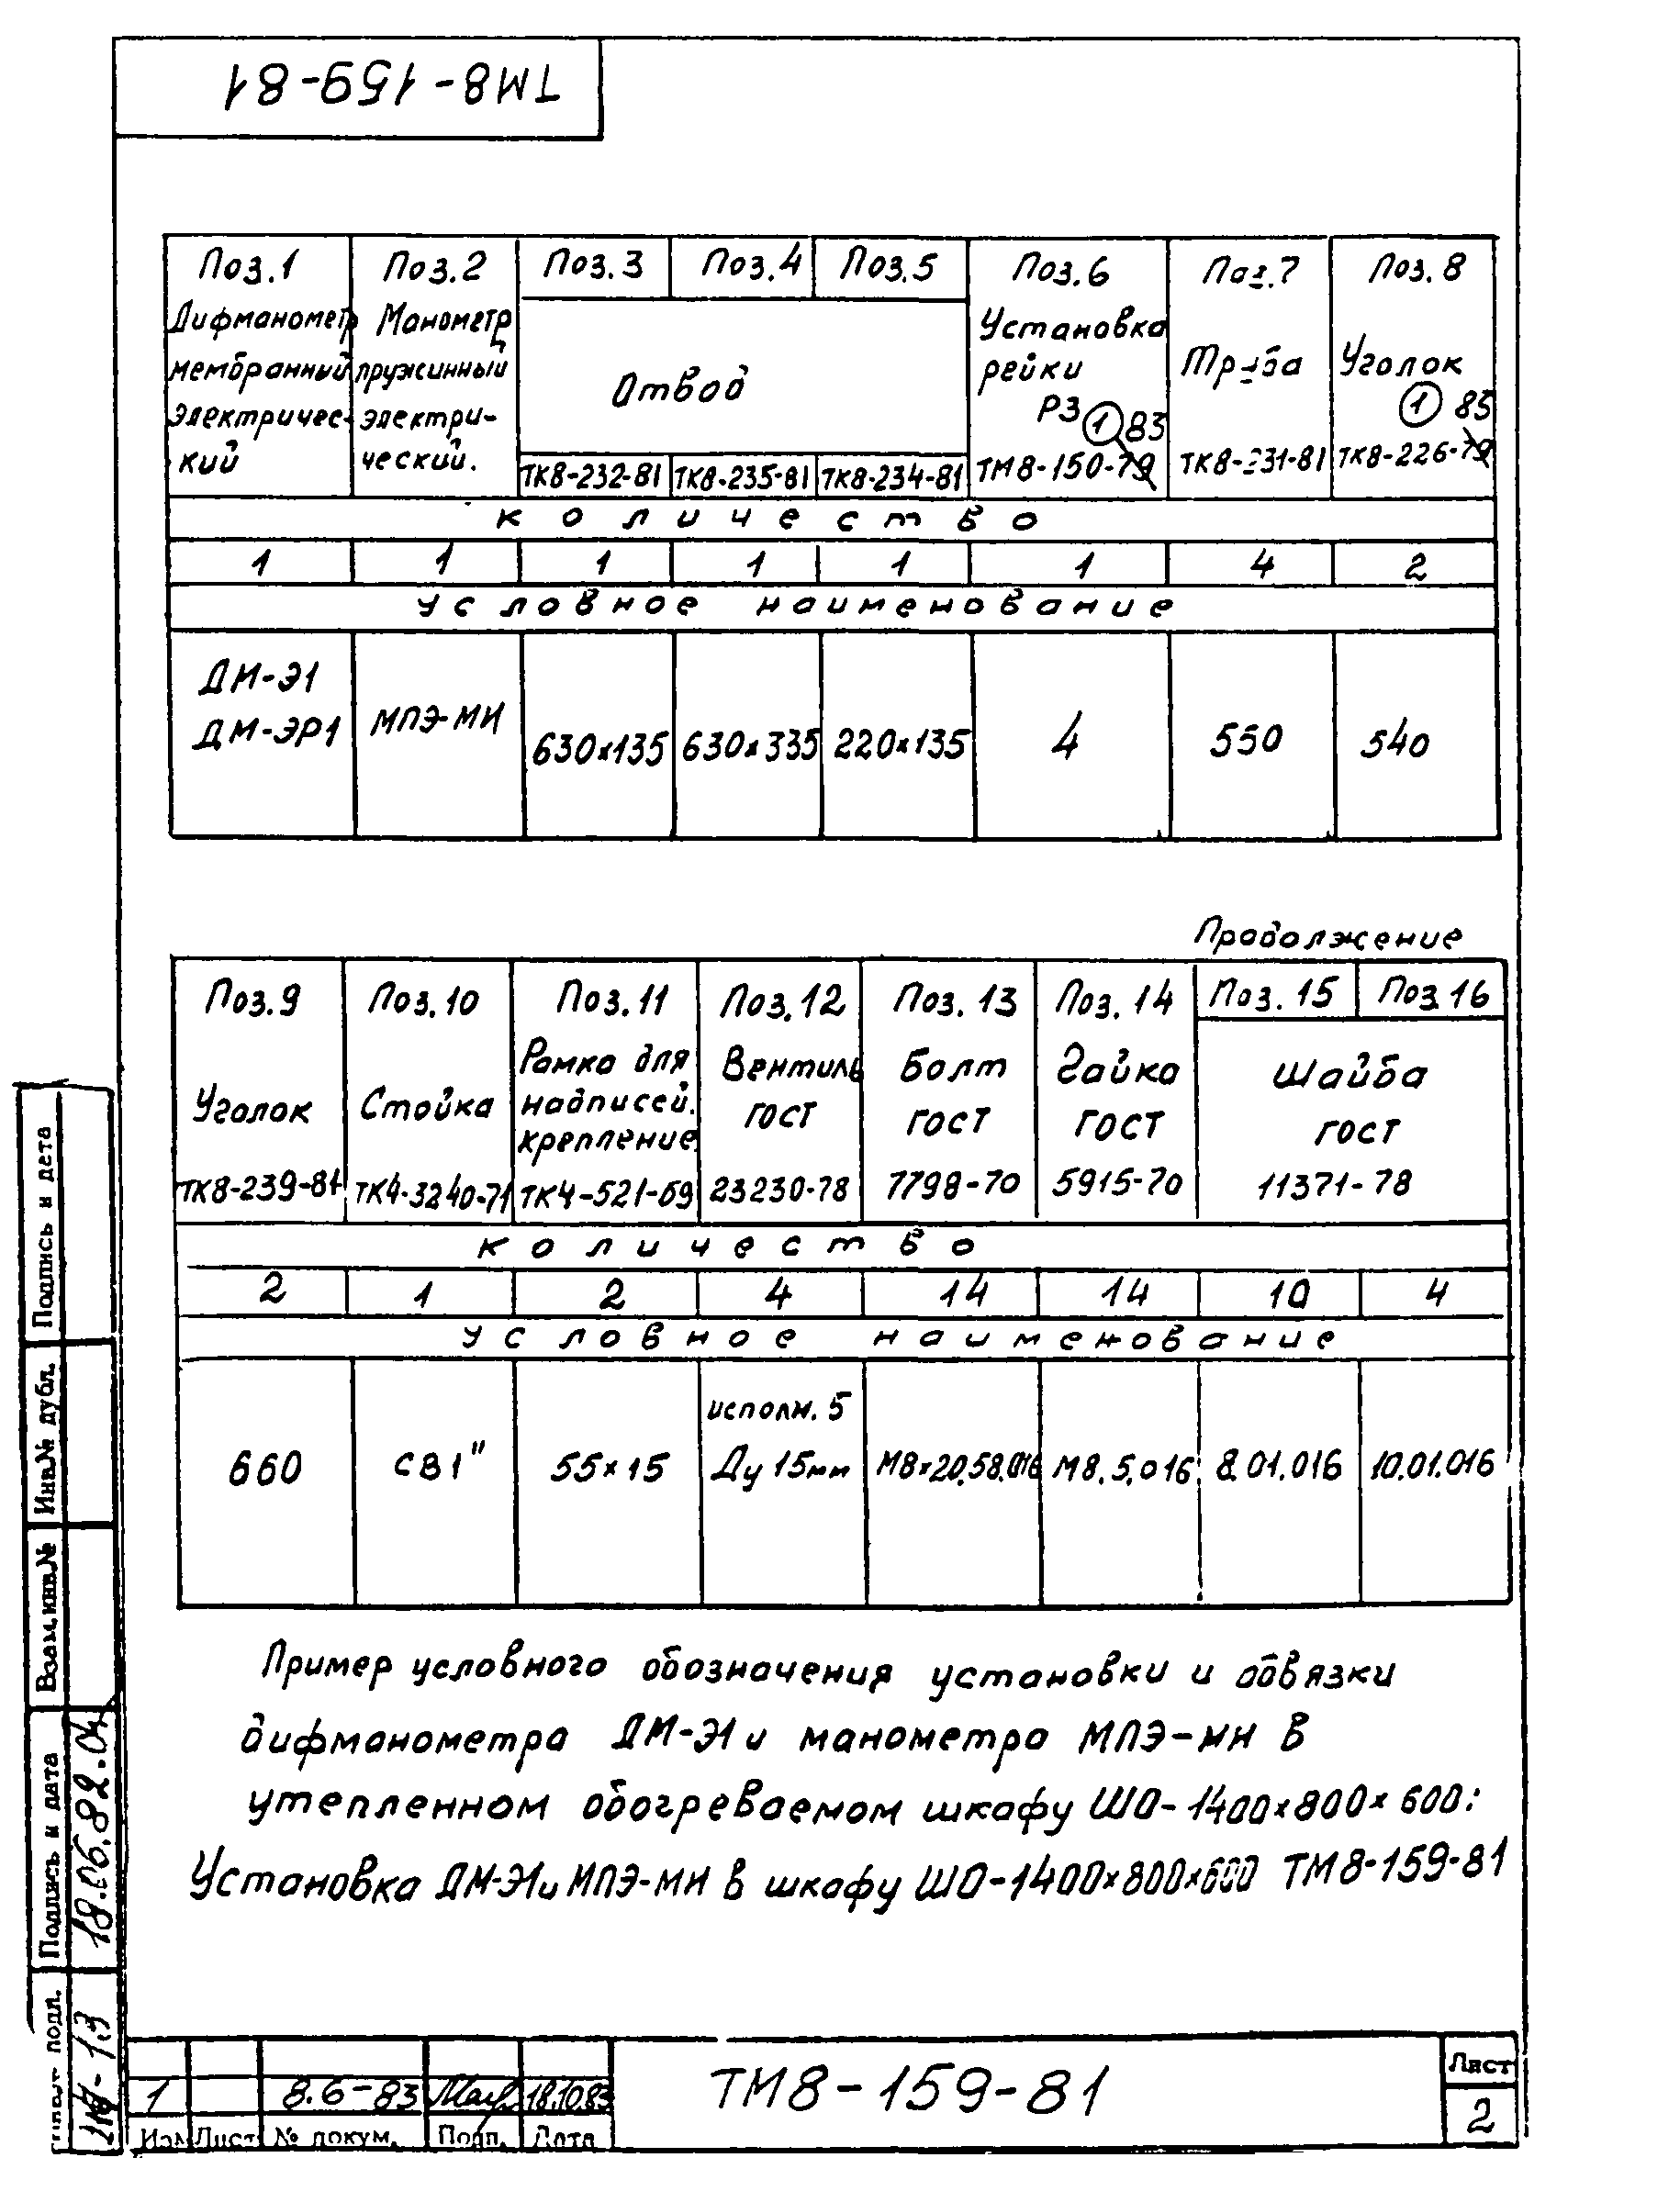 ТМ8-159-81
Поз.1 Поз.2 Поз.3 Поз.4 Поз.5 Поз.6 Поз.7 Поз.8
Дифманометр мембранный электричес- кий
Манометр пружинный электри- ческий.
Отвод
ТК8-232-81 ТК8-235-81 ТК8-234-81
Установка рейки Р3 1 83 ТМ8-150-79
Труба ТК8-231-81
Уголок 1 83 ТК8-226-79
количество
1 1 1 1 1 1 4 2
условное наименование
ДМ-Э1
ДМ-ЭР1 МПЭ-МИ 630х135 630х335 220х135 4 550 540
Продолжение
Поз.9 Поз.10 Поз.11 Поз.12 Поз.13 Поз.14 Поз.15 Поз.16
Уголок ТК8-239-81
Стойка ТК4-3240-71
Рамка для надписей. крепление ТК4-521-69
Вентиль ГОСТ 23230-78
Болт ГОСТ 7798-70
Гайка ГОСТ 5915-70
Шайба ГОСТ 11371-78
количество
2 1 2 4 14 14 10 4
условное наименование
исполн. 5
660 СВ1" 55х15 Ду 15мм М8х20.58.016 М8.5.016 8.01.016 10.01.016
Пример условного обозначения установки и обвязки
дифманометра ДМ-Э1 и манометра МПЭ-МИ в
утепленном обогреваемом шкафу ШО-1400х800х600:
Установка ДМ-Э1 и МПЭ-МИ в шкафу ШО-1400х800х600 ТМ8-159-81
Подпись и дата
Инв.№ дубл.
Взам.инв.№
Подпись и дата 18.06.82.
подл.
1 8.6-83 18.10.83
Изм Лист № докум. Подп. Дата
ТМ8-159-81
Лист
2